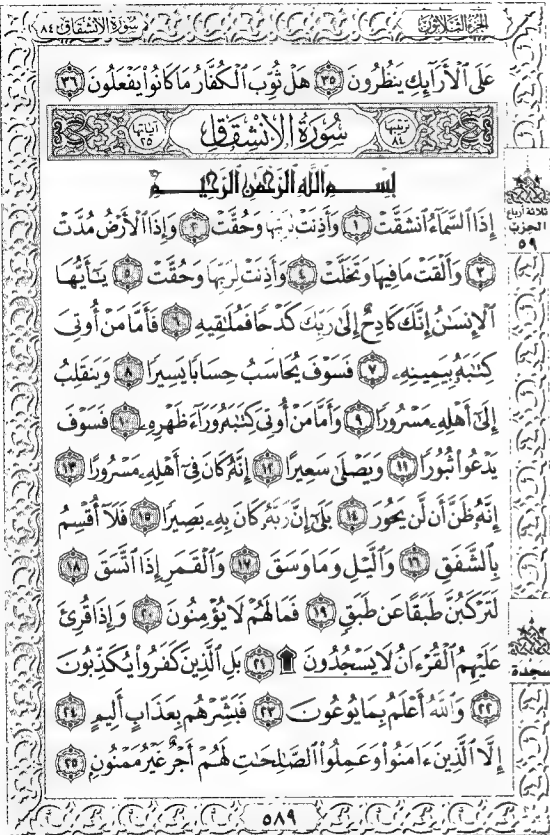 سورة الانشقاق ٨٤ الجزء الثلاثون
عَلَى ٱلْأَرَآئِكِ يَنظُرُونَ ٣٥ هَلْ ثُوِّبَ ٱلْكُفَّارُ مَا كَانُوا۟ يَفْعَلُونَ ٣٦
ترتيبها ٨٤ سُورَةُ الانْشِقَاقِ آياتها ٢٥
بِسْمِ ٱللَّهِ ٱلرَّحْمَٰنِ ٱلرَّحِيمِ
إِذَا ٱلسَّمَآءُ ٱنشَقَّتْ ١ وَأَذِنَتْ لِرَبِّهَا وَحُقَّتْ ٢ وَإِذَا ٱلْأَرْضُ مُدَّتْ
٣ وَأَلْقَتْ مَا فِيهَا وَتَخَلَّتْ ٤ وَأَذِنَتْ لِرَبِّهَا وَحُقَّتْ ٥ يَٰٓأَيُّهَا
ٱلْإِنسَٰنُ إِنَّكَ كَادِحٌ إِلَىٰ رَبِّكَ كَدْحًا فَمُلَٰقِيهِ ٦ فَأَمَّا مَنْ أُوتِىَ
كِتَٰبَهُۥ بِيَمِينِهِۦ ٧ فَسَوْفَ يُحَاسَبُ حِسَابًا يَسِيرًا ٨ وَيَنقَلِبُ
إِلَىٰٓ أَهْلِهِۦ مَسْرُورًا ٩ وَأَمَّا مَنْ أُوتِىَ كِتَٰبَهُۥ وَرَآءَ ظَهْرِهِۦ ١٠ فَسَوْفَ
يَدْعُوا۟ ثُبُورًا ١١ وَيَصْلَىٰ سَعِيرًا ١٢ إِنَّهُۥ كَانَ فِىٓ أَهْلِهِۦ مَسْرُورًا ١٣
إِنَّهُۥ ظَنَّ أَن لَّن يَحُورَ ١٤ بَلَىٰٓ إِنَّ رَبَّهُۥ كَانَ بِهِۦ بَصِيرًا ١٥ فَلَآ أُقْسِمُ
بِٱلشَّفَقِ ١٦ وَٱلَّيْلِ وَمَا وَسَقَ ١٧ وَٱلْقَمَرِ إِذَا ٱتَّسَقَ ١٨
لَتَرْكَبُنَّ طَبَقًا عَن طَبَقٍ ١٩ فَمَا لَهُمْ لَا يُؤْمِنُونَ ٢٠ وَإِذَا قُرِئَ
عَلَيْهِمُ ٱلْقُرْءَانُ لَا يَسْجُدُونَ ۩ ٢١ بَلِ ٱلَّذِينَ كَفَرُوا۟ يُكَذِّبُونَ
٢٢ وَٱللَّهُ أَعْلَمُ بِمَا يُوعُونَ ٢٣ فَبَشِّرْهُم بِعَذَابٍ أَلِيمٍ ٢٤
إِلَّا ٱلَّذِينَ ءَامَنُوا۟ وَعَمِلُوا۟ ٱلصَّٰلِحَٰتِ لَهُمْ أَجْرٌ غَيْرُ مَمْنُونٍۭ ٢٥
٥٨٩
ثلاثة أرباع
الحزب
٥٩
سجدة